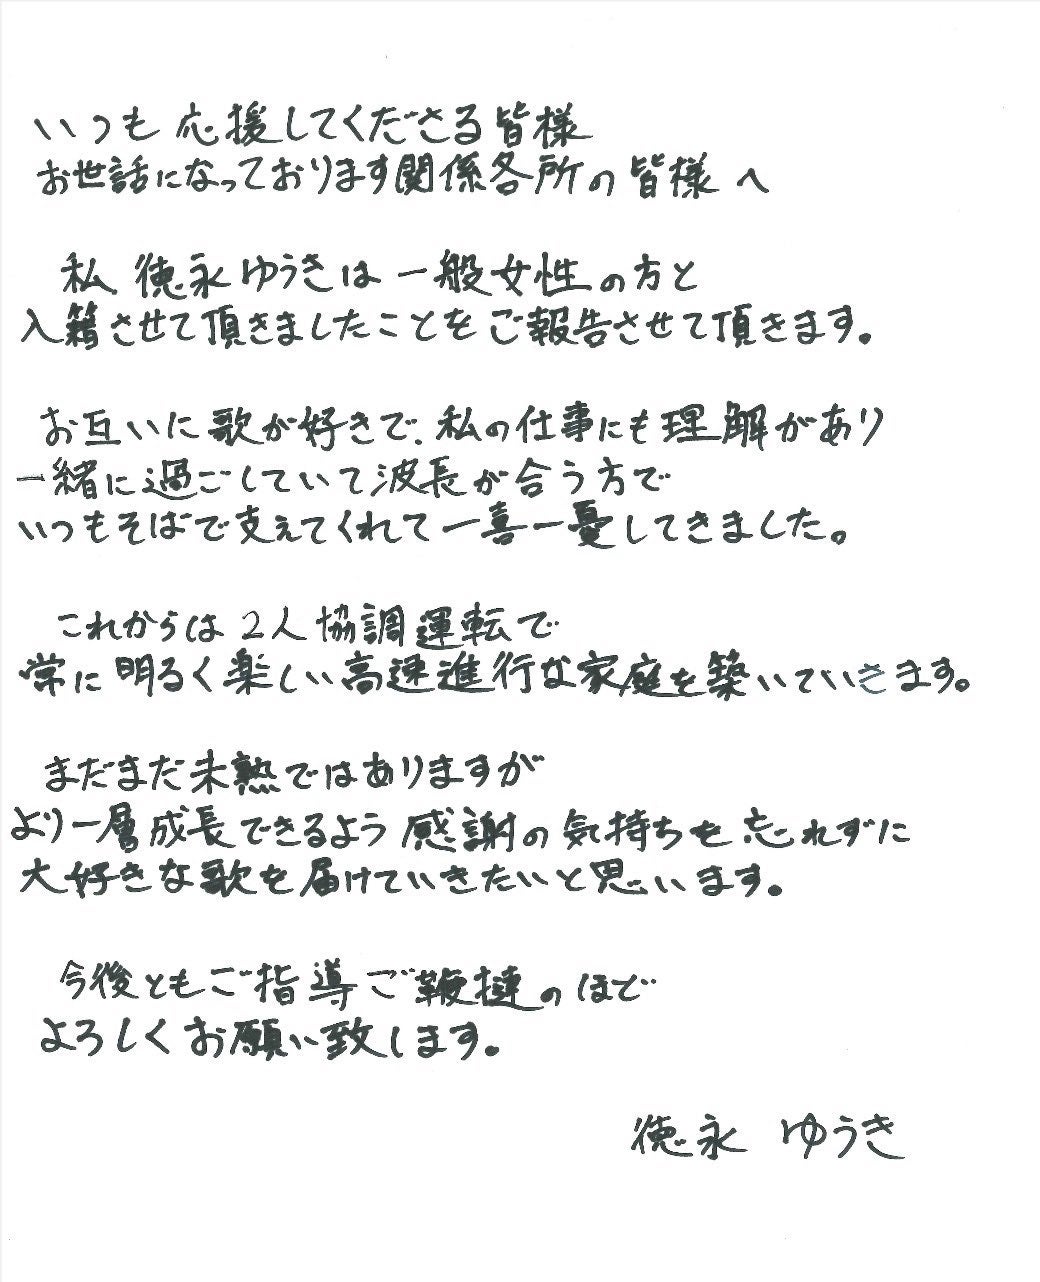 いつも応援してくださる皆様
お世話になっております関係各所の皆様へ
私、徳永ゆうきは一般女性の方と
入籍させて頂きましたことをご報告させて頂きます。
お互いに歌が好きで、私の仕事にも理解があり
一緒に過ごしていて波長が合う方で
いつもそばで支えてくれて一喜一憂してきました。
これからは2人協調運転で
常に明るく楽しい高速進行な家庭を築いていきます。
まだまだ未熟ではありますが
より一層成長できるよう感謝の気持ちを忘れずに
大好きな歌を届けていきたいと思います。
今後ともご指導ご鞭撻のほど
よろしくお願い致します。
徳永 ゆうき